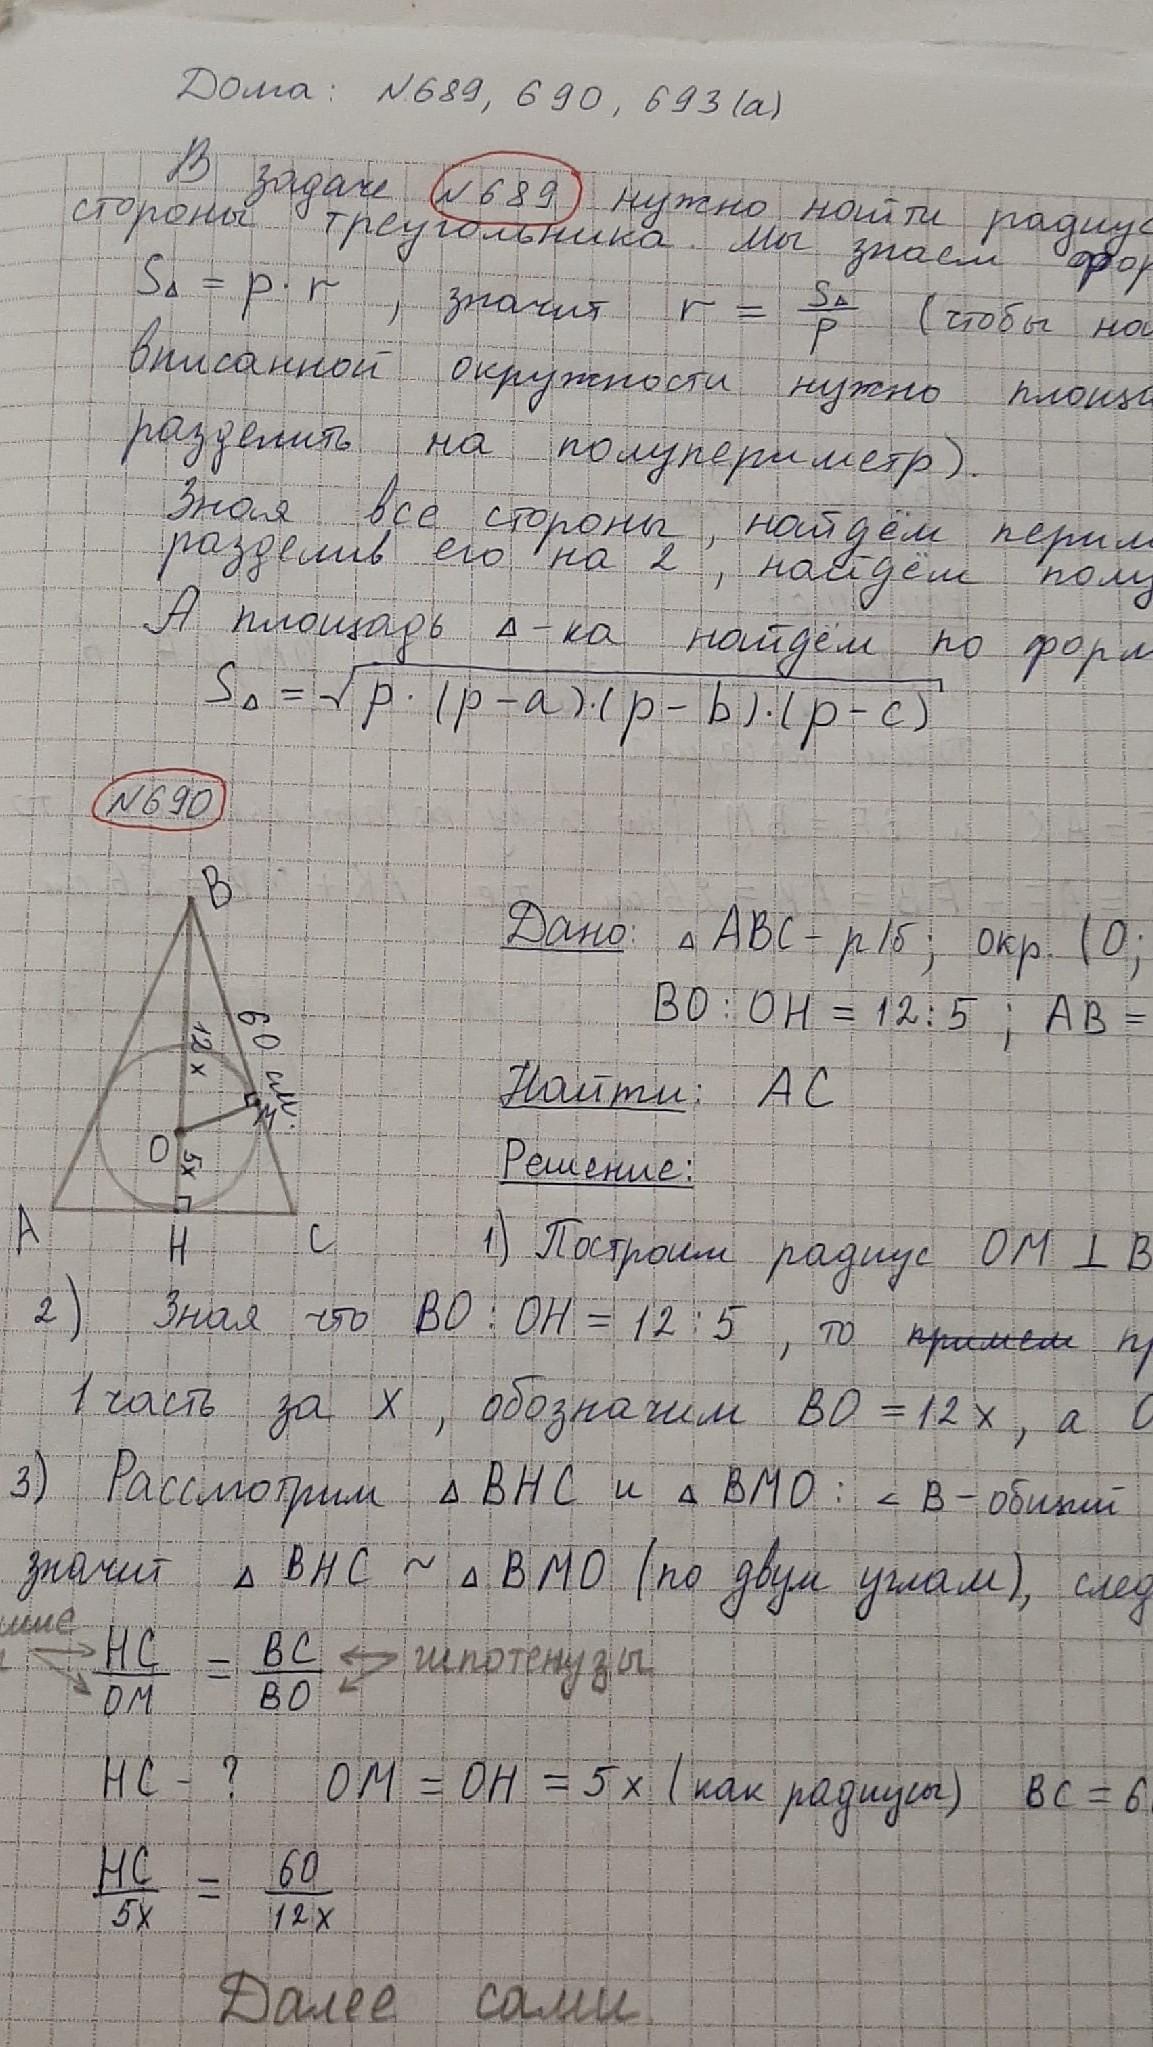 Дома: №689, 690, 693(а)
В задаче №689 нужно найти радиус
стороны треугольника. Мы знаем фор
S△ = p · r , значит r = S△/p (чтобы на
вписанной окружности нужно площа
разделить на полупериметр).
Зная все стороны, найдём перим
разделив его на 2, найдём полу
А площадь △-ка найдём по форм
S△ = √p·(p-a)·(p-b)·(p-c)
№690
B
60 см.
12x
M
O
5x
A H C
Дано: △ABC - р/б; окр. (O;
BO : OH = 12:5 ; AB =
Найти: AC
Решение:
1) Построим радиус OM ⊥ B
2) Зная что BO : OH = 12 : 5 , то примем пр
1 часть за x , обозначим BO = 12x, а O
3) Рассмотрим △BHC и △BMO: ∠B - общий
значит △BHC ~ △BMO (по двум углам), след
HC/OM = BC/BO гипотенузы
HC - ? OM = OH = 5x (как радиусы) BC = 6
HC/5x = 60/12x
Далее сами